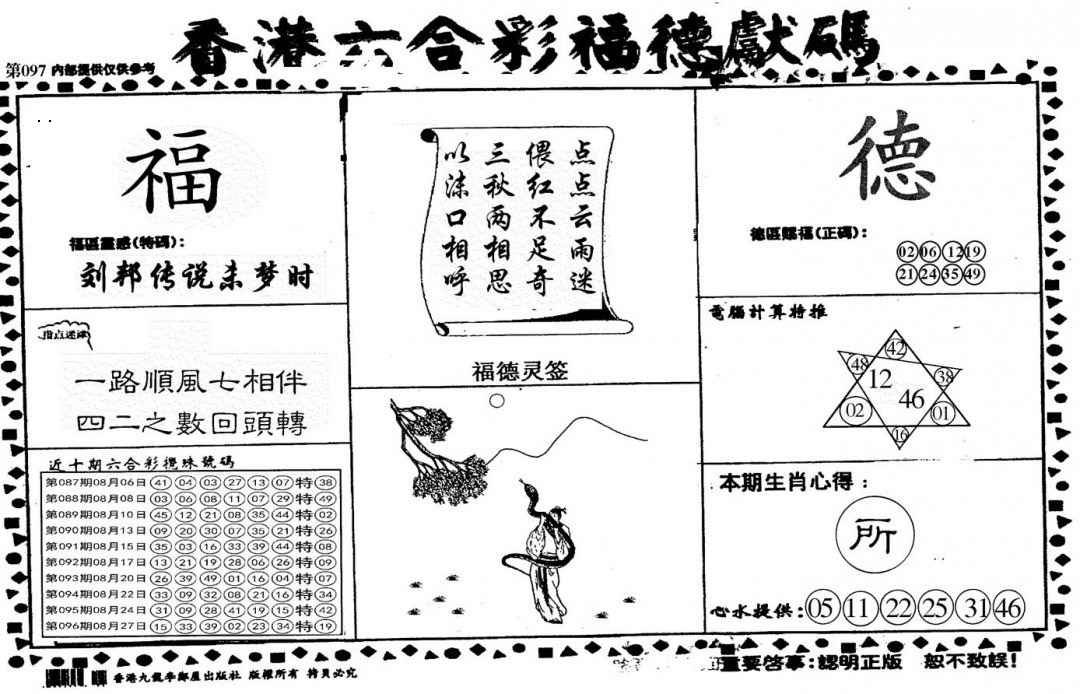 香港六合彩福德獻碼
第097 內部提供仅供参考
福
福區靈感(特碼):
刘邦传说杀梦时
指点迷津
一路順風七相伴
四二之數回頭轉
近十期六合彩攪珠號碼
第087期08月06日 41 04 03 27 13 07 特 38
第088期08月08日 03 06 08 11 07 29 特 49
第089期08月10日 45 12 21 08 35 44 特 02
第090期08月13日 09 20 30 07 35 21 特 26
第091期08月15日 35 03 16 33 39 44 特 08
第092期08月17日 13 21 19 28 06 26 特 09
第093期08月20日 26 39 49 01 16 04 特 07
第094期08月22日 33 09 32 08 21 16 特 34
第095期08月24日 31 09 28 41 19 15 特 42
第096期08月27日 15 33 39 02 23 34 特 19
点点云雨迷
偎红不足奇
三秋两相思
以沫口相呼
福德灵签
德
德區賜福(正碼):
02 06 12 19
21 24 35 49
電腦計算特推
42
48 12 38
46
02 01
16
本期生肖心得:
所
心水提供: 05 11 22 25 31 46
香港九龍李鄭屋出版社 版權所有 拷貝必究
重要啓事:認明正版 恕不致誤!